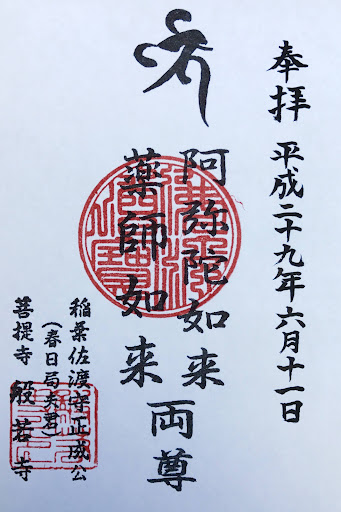 奉拝 平成二十九年六月十一日
阿弥陀如来
薬師如来
両尊
稲葉佐渡守正成公
(春日局夫君)
菩提寺 般若寺